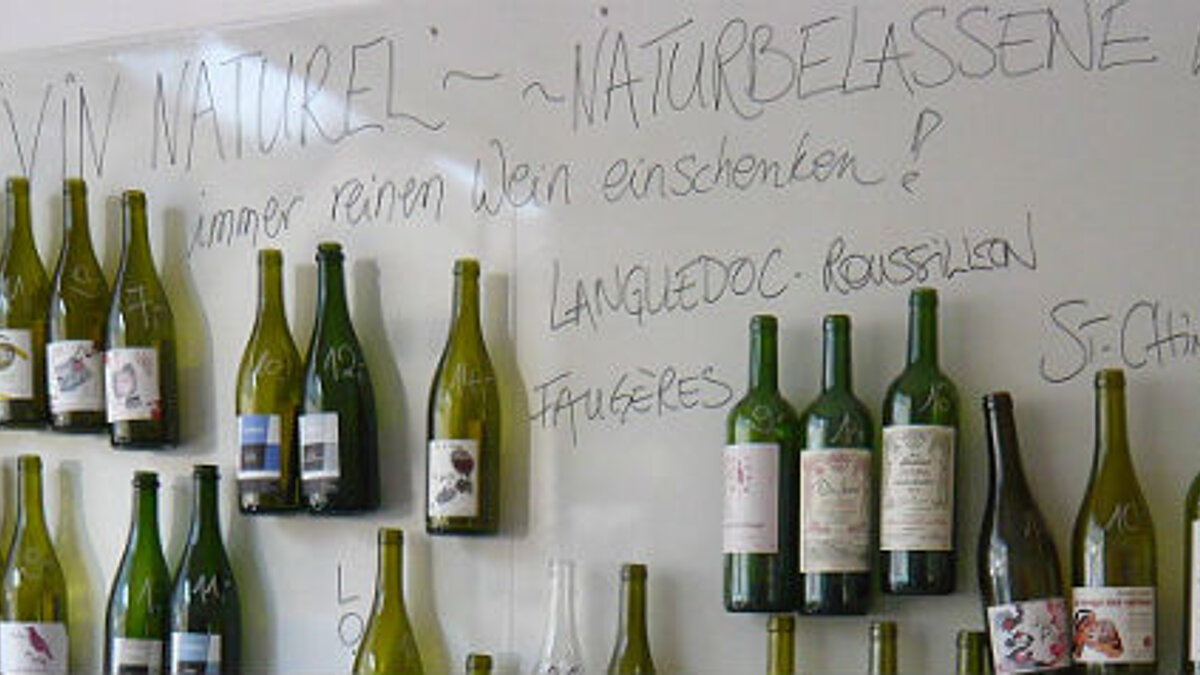 VIN NATUREL ~ ~NATURBELASSENE
immer reinen Wein einschenken!
LANGUEDOC-ROUSSILLON
ST-CHIN
FAUGÈRES
7.-
10
12.-
14.-
11.-
LO